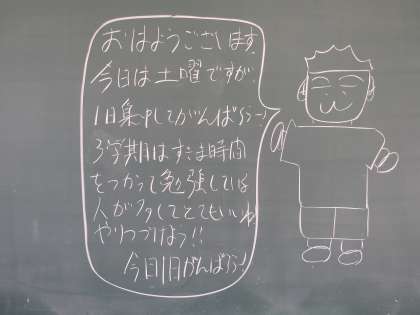 おはようございます。
今日は土曜ですが、
1日集中してがんばろう！
3学期はすきま時間
をつかって勉強している
人が多くしてとてもいいね
やりつづけよう!!
今日1日がんばろう！